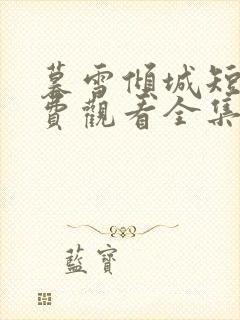 慕雪傾城短
費觀看全集
藍寶